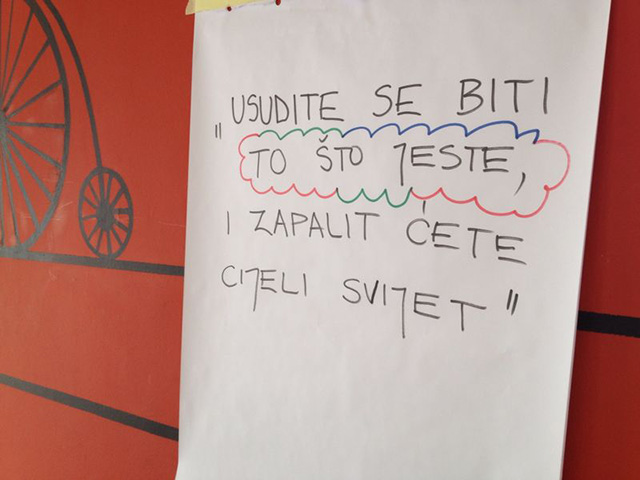 "USUDITE SE BITI
TO ŠTO JESTE,
I ZAPALIT ĆETE
CIJELI SVIJET"